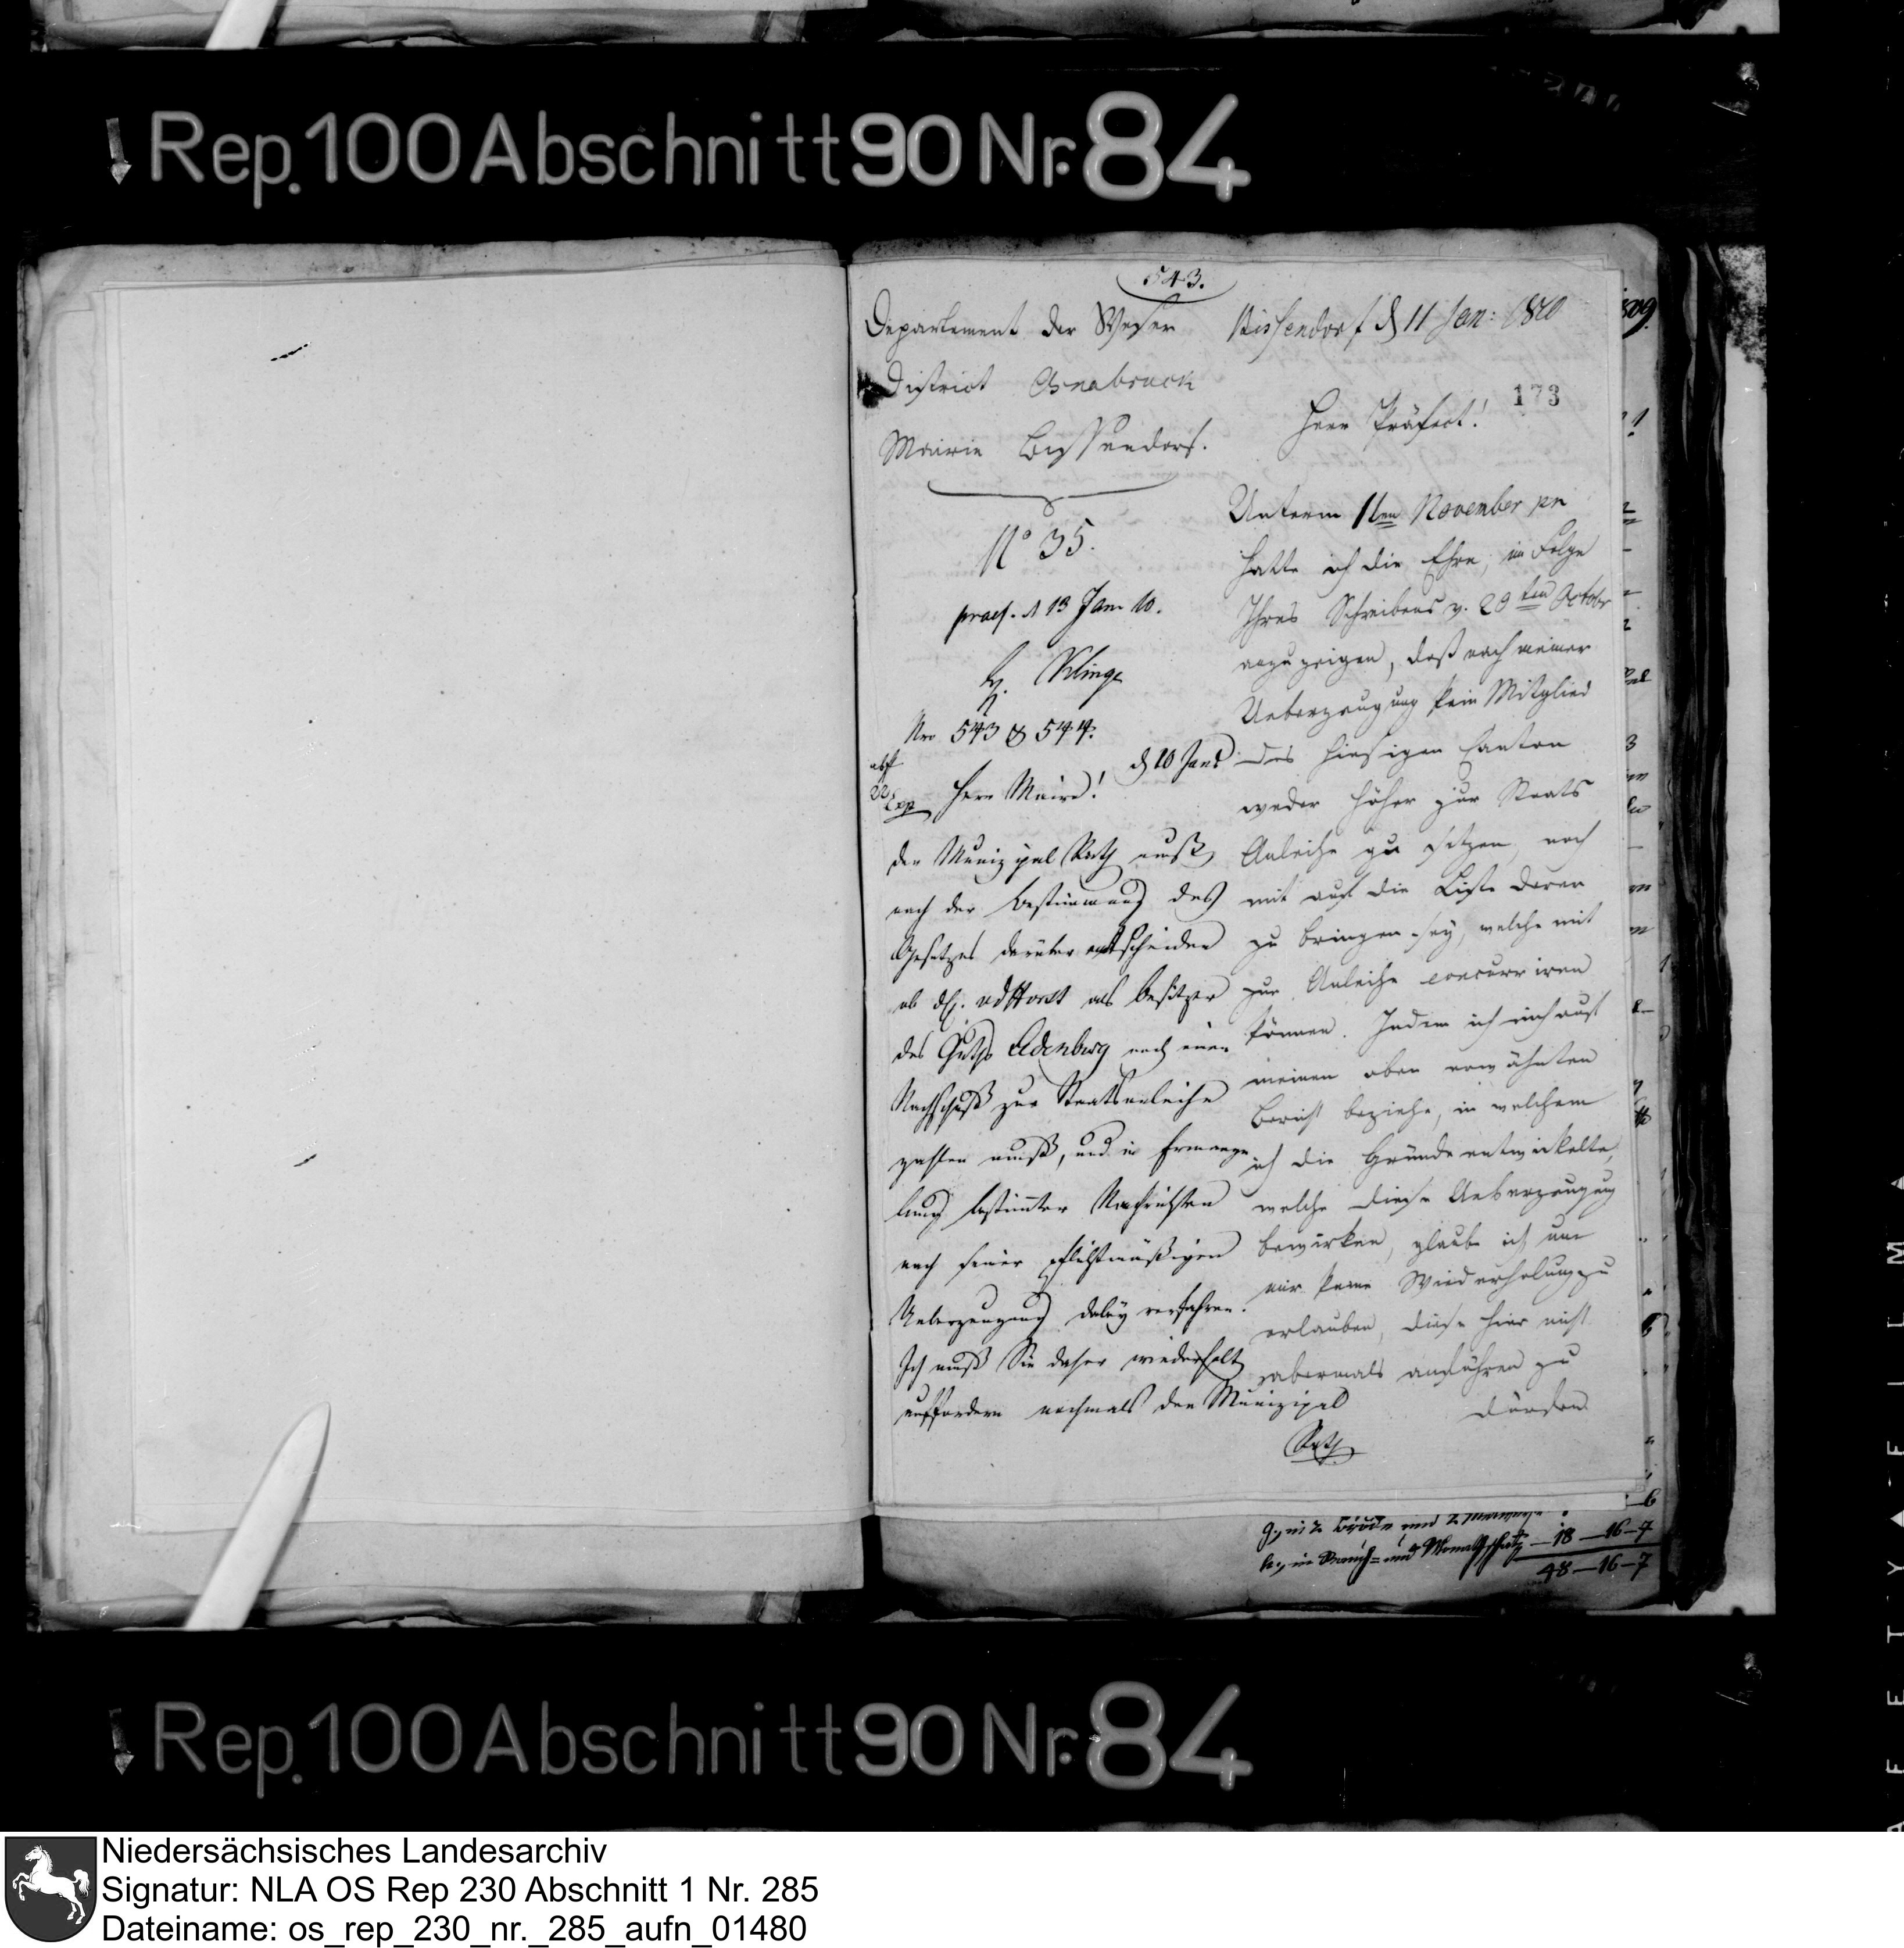 Rep. 100 Abschnitt 90 Nr. 84
543.
Departement der Weser
District Osnabruck
Mairie Bissendorf.
N° 35.
praes. d 13 Jan 10.
H. Klinge
Nro 543 & 544.
Herr Maire!
d 20 Jan
der Munizipal Rath muß
nach der Bestimmung des
Gesetzes darüber entscheiden
ob H. vdHorst als Besitzer
des Guths Ledenburg noch einen
Nachschuß zur Staatsanleihe
zahlen muß, und in Ermange
lung bestimter Nachrichten
nach seiner pflichtmäßigen
Ueberzeugung dabey verfahren.
Ich muß Sie daher wiederholt
auffordern nochmals den Munizipal
Rath
Bissendorf d 11 Jan: 1810
173
Herr Präfect!
Unterm 1ten November
hatte ich die Ehre, in Folge
Ihres Schreibens v. 29ten October
anzuzeigen, daß nach meiner
Ueberzeugung kein Mitglied
des hiesigen Canton
weder höher zur Staats
Anleihe zu setzen, noch
mit auf die Liste derer
zu bringen sey, welche mit
zur Anleihe concurriren
können. Indem ich mich auf
meinen oben erwähnten
Bericht beziehe, in welchem
ich die Gründe entwickelte,
welche diese Ueberzeugung
bewirken, glaube ich um
mir keine Wiederholung zu
erlauben, diese hier nicht
abermals anführen zu
dürfen
809.
18—16—7
48—16—7
Rep. 100 Abschnitt 90 Nr. 84
Niedersächsisches Landesarchiv
Signatur: NLA OS Rep 230 Abschnitt 1 Nr. 285
Dateiname: os_rep_230_nr._285_aufn_01480